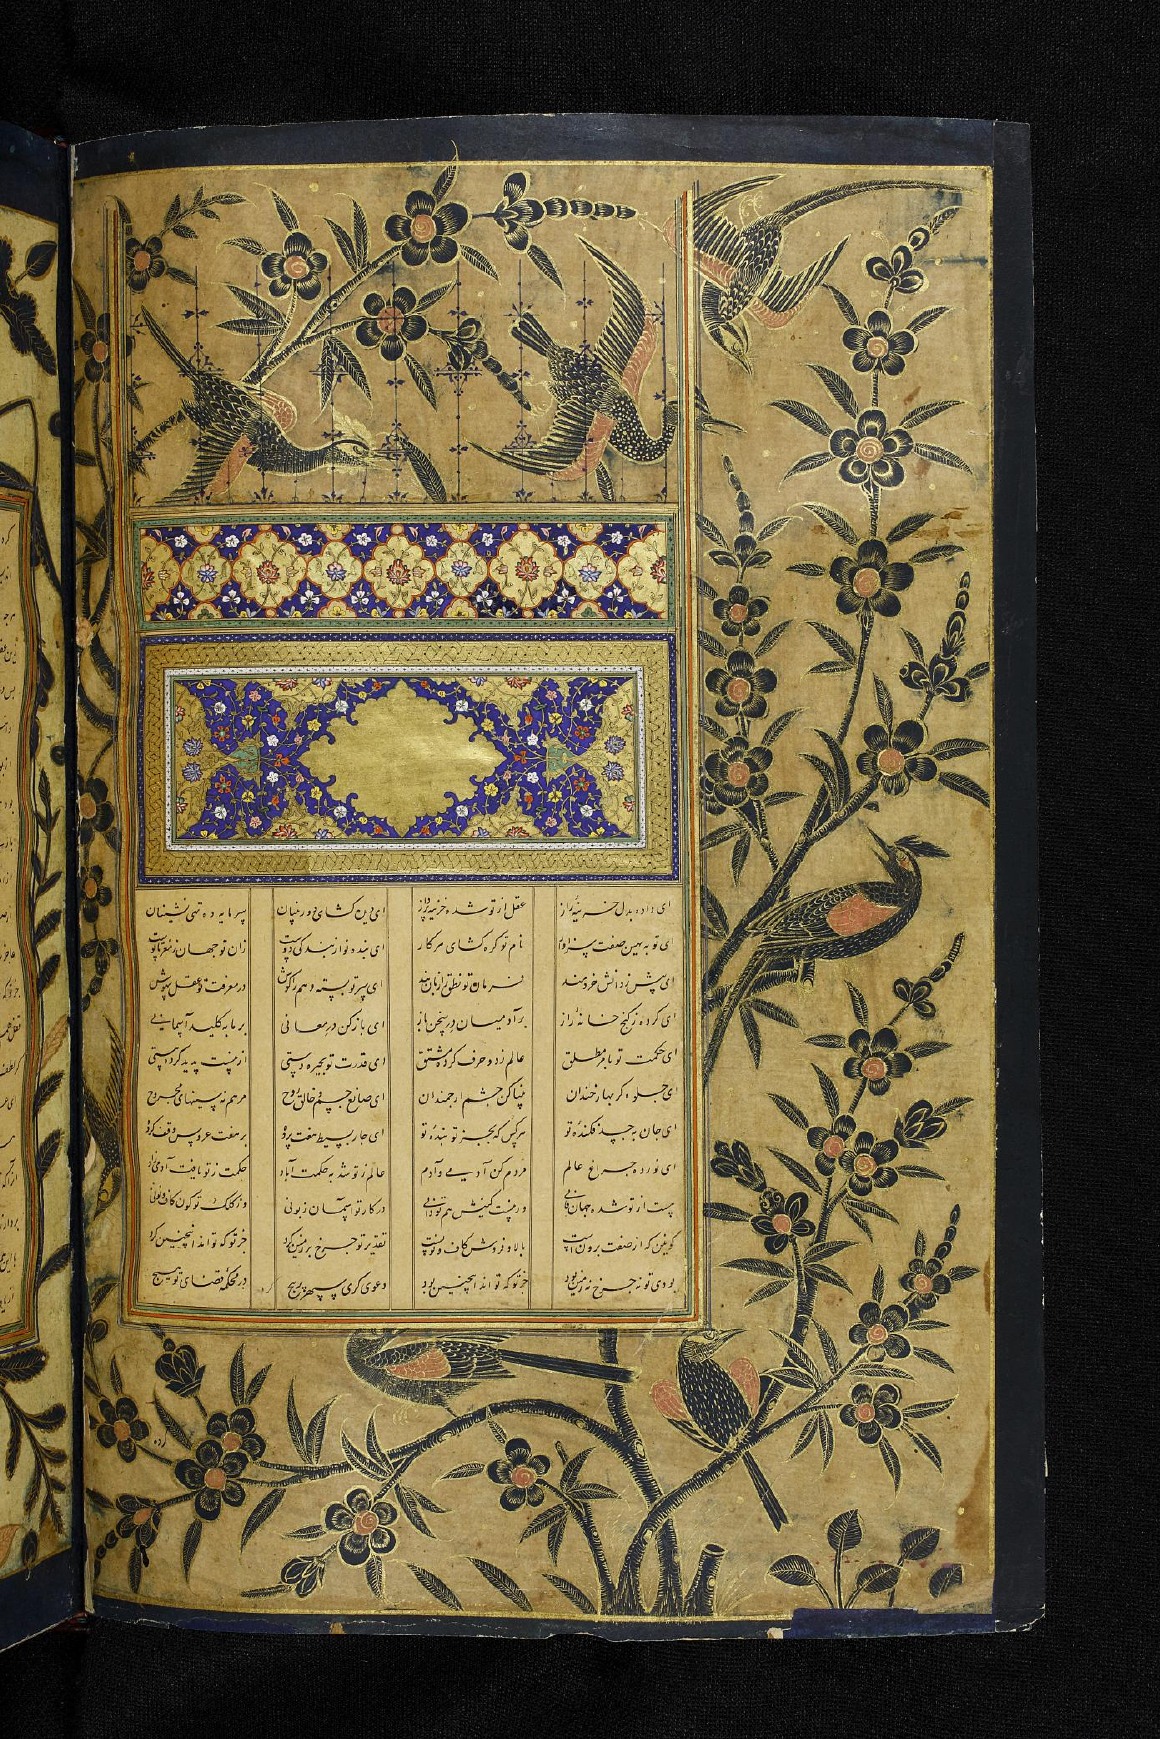 ای داده بدل خزینهٔ راز عقل از تو شده خزینه پرداز ای دیده گشای دوربینان سرمایه ده تهی نشینان
ای تو به بهین صفت سزاوار نام تو گره گشای هر کار ای بنده نواز بندگی دوست زان تو جهان ز مغز تا پوست
ای بیش ز دانش خردمند فرمان تو نطق را زبان بند ای سر تو بسته وهم را گوش در معرفت تو عقل بیهوش
ای کرده ز گنج خانه راز بر آدمیان در سخن باز ای باز کن در معانی بر ما به کلید آسمانی
ای حکمت تو بامر مطلق عالم ز دو حرف کرده مشتق ای قدرت تو بچیره دستی از نیست پدید کرده هستی
ای جلوه گر بهار خندان بینا کن چشم ارجمندان ای صانع جسم و خالق روح مرهم نه سینهای مجروح
ای جان به جسد فکنده تو هر کس که بجز تو بنده تو ای چار بسیط هفت پرده بر هفت عروس وقف کرده
ای نور ده چراغ عالم مردم کن آدمی و آدم عالم ز تو شد به حکمت آباد حکمت ز تو یافت آدمی زاد
هست از تو شده جهان فانی ور نیست کنیش هم توانی در کار تو آسمان زبونی وز کلک تو کون کاف و نونی
که از صنعت برونست کاف و نونست تقدیر تو چرخ بر زمین کرد جز تو که تواند اینچنین کرد
بودی تو نه چرخ نه زمین بود جز تو که تواند اینچنین بود دعوی گری سپهر پر پیچ در محکمه قضای تو هیچ